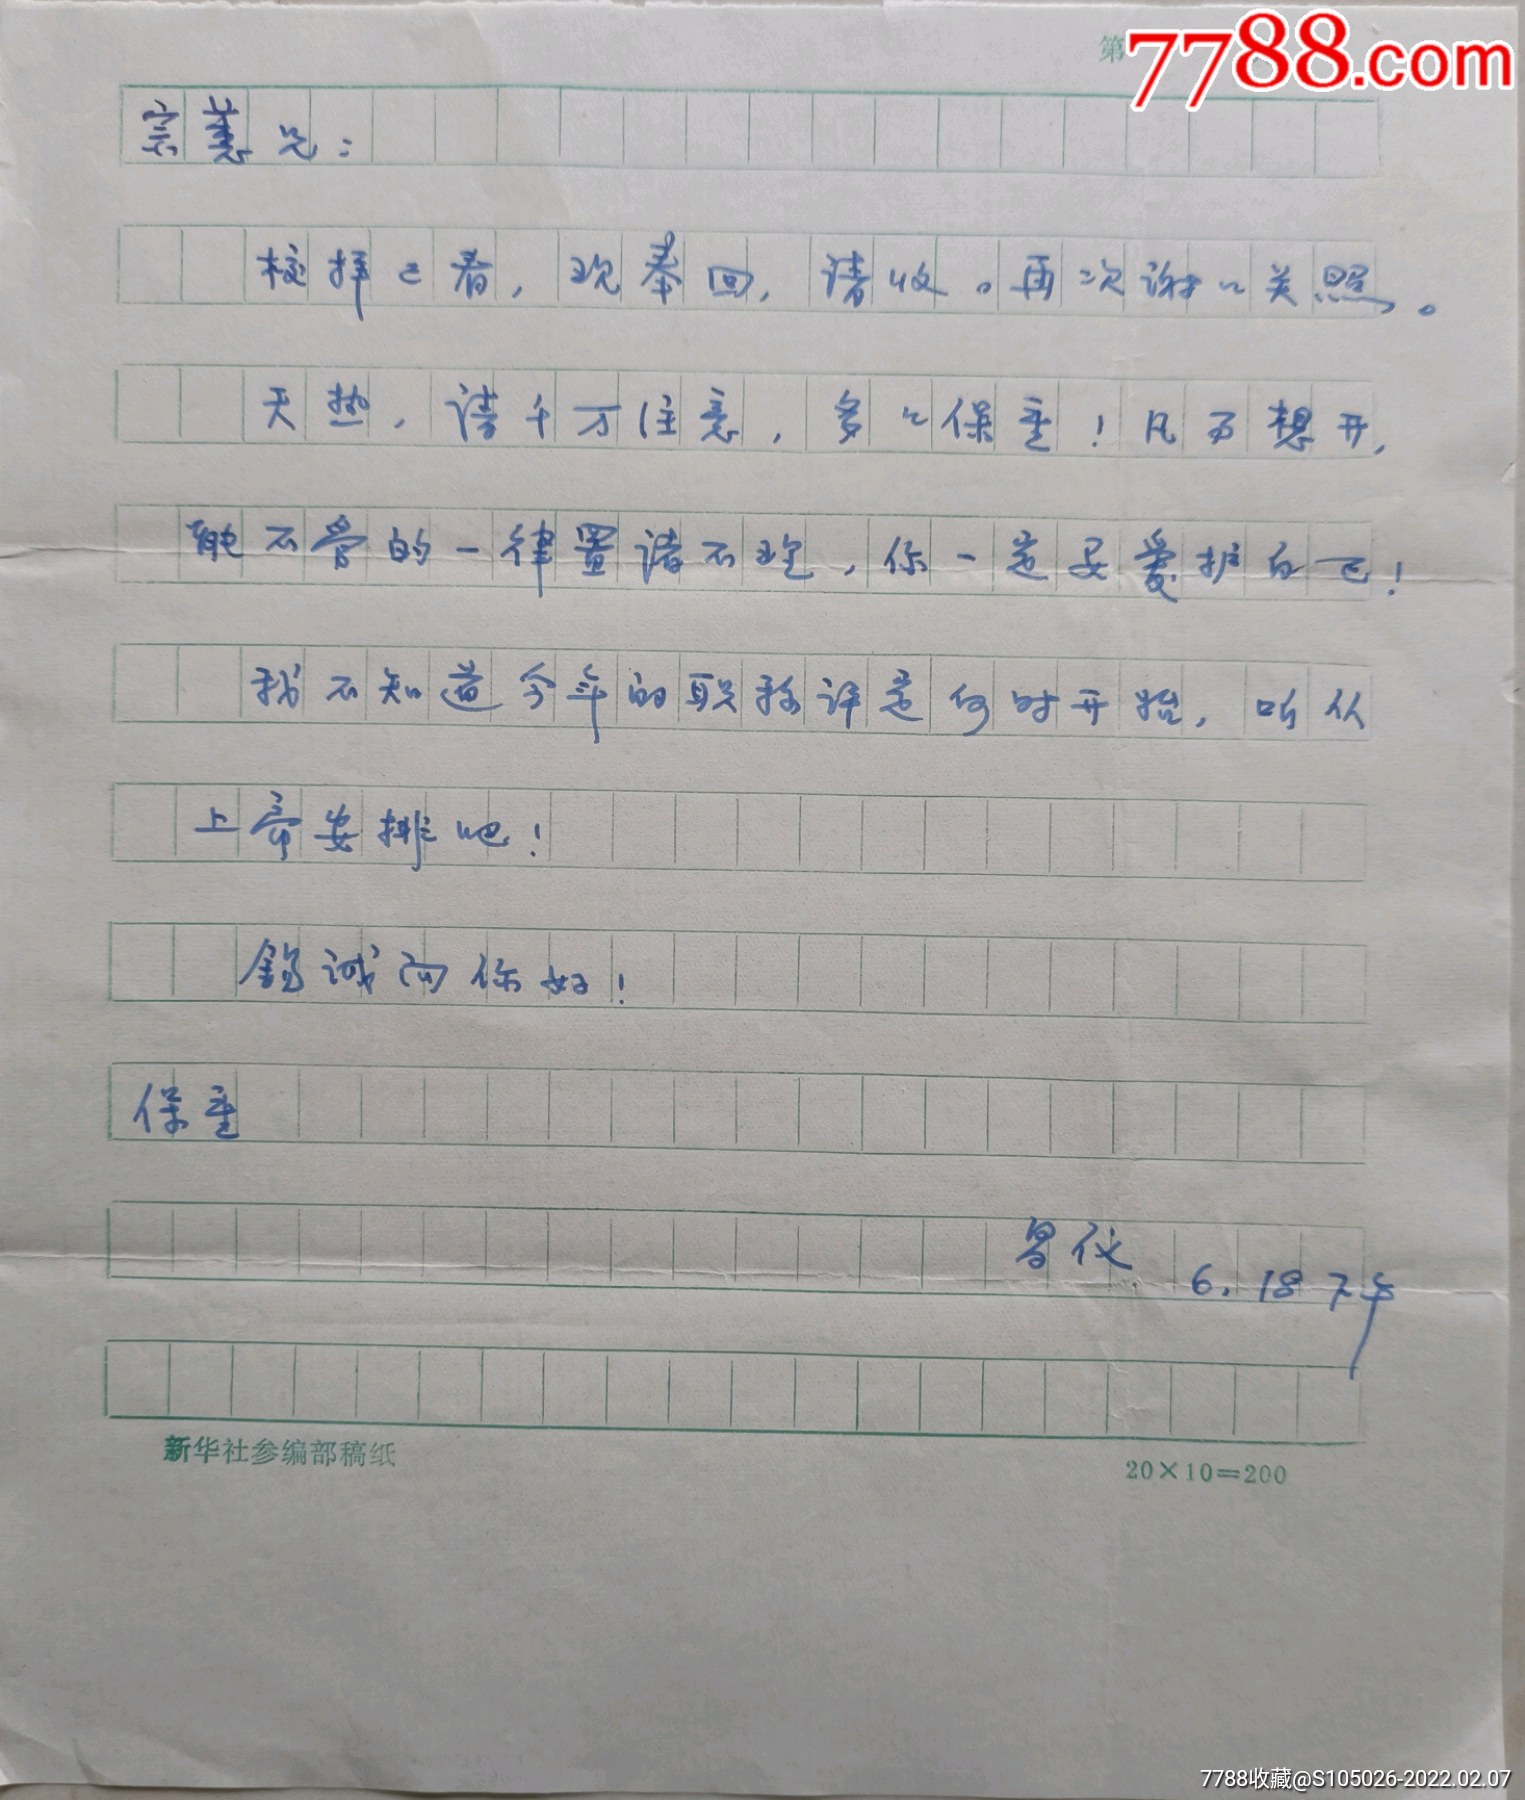 第
7788.com
宗羲兄：
校样已看，现奉回，请收。再次谢谢关照。
天热，请千万注意，多多保重！凡百想开，
能不管的一律置诸不理，你一定要爱护自己！
我不知道今年的职称评定何时开始，听从
上帝安排吧！
诚问你好！
保重
昌仪
6.18下午
新华社参编部稿纸
20×10=200
7788收藏@S105026-2022.02.07